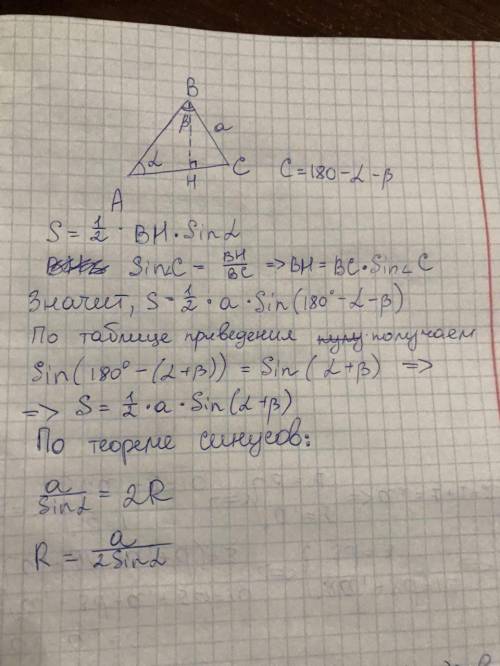 B
β
a
α
A
H
C
C = 180 - α - β
S = 1/2 · BH · Sinα
Sin∠C = BH/BC => BH = BC · Sin∠C
Значит, S = 1/2 · a · Sin(180° - α - β)
По таблице приведения получаем
Sin(180° - (α + β)) = Sin(α + β) =>
=> S = 1/2 · a · Sin(α + β)
По теореме синусов:
a/Sinα = 2R
R = a/2Sinα